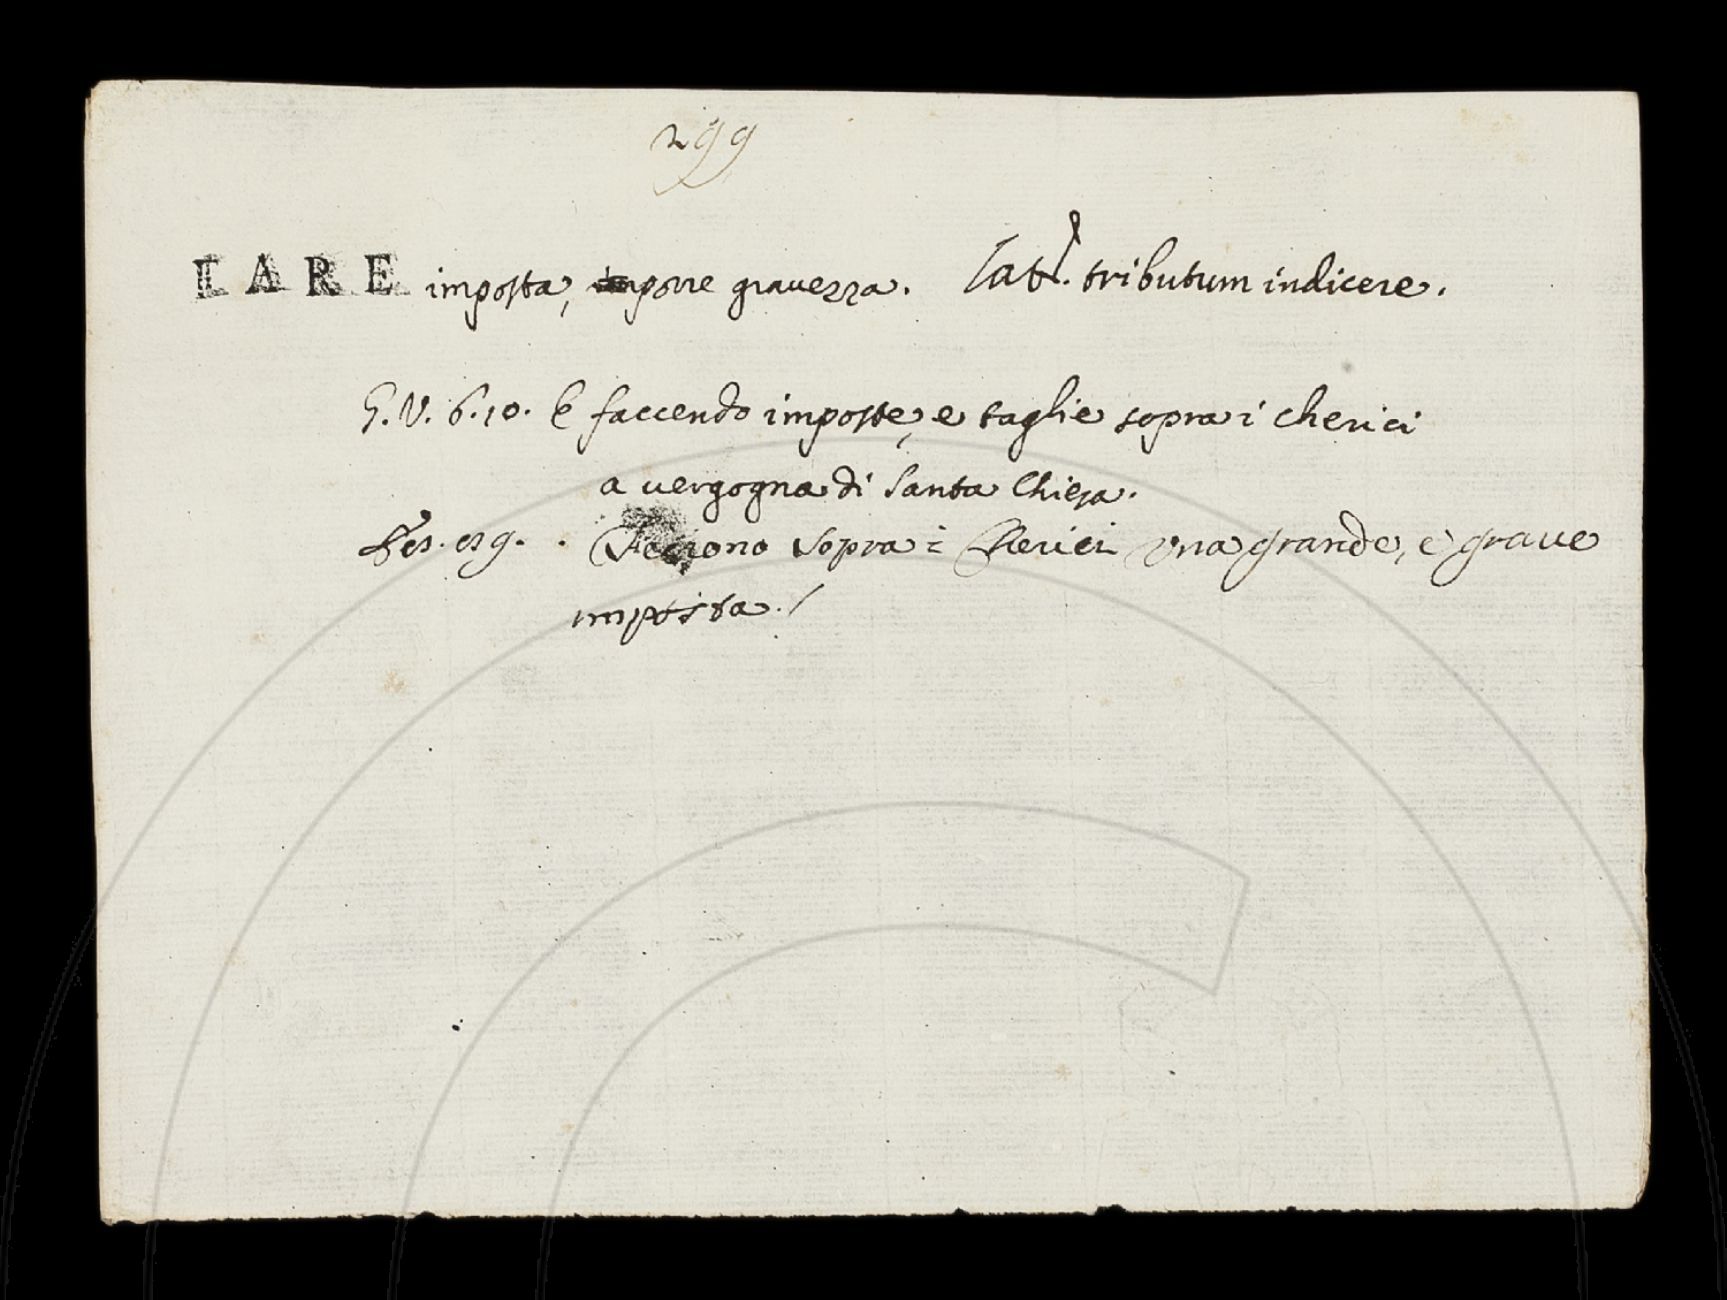 299
FARE imposta, imporre grauezza. Lat. tributum indicere.
G. V. 6. 10. E faccendo imposte, e taglie sopra i cherici
a uergogna di Santa Chiesa.
Feciono sopra i Cherici una grande, e graue
imposta.